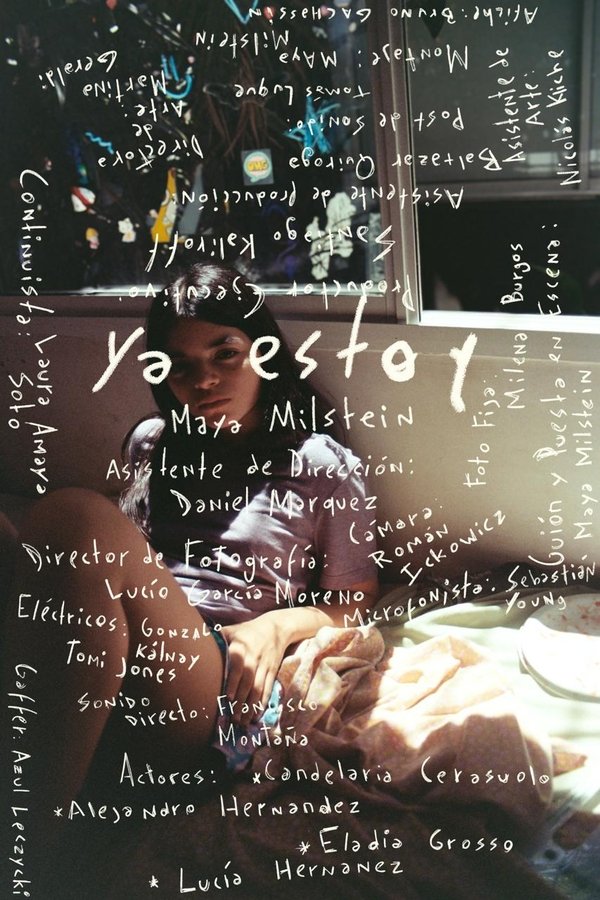 Afiche: Bruno Gachassin
Montaje: Maya
Milstein
Post de Sonido:
Tomás Luque
Baltazar Quiroga
Asistente de producción:
Santiago Kaliroff
Productor Ejecutivo:
Directora
de
Arte:
Martina
Geraldi
Asistente de
Arte:
Nicolás Kliche
OMG
ya estoy
Maya Milstein
Asistente de Dirección:
Daniel Marquez
Director de Fotografía:
Lucío García Moreno
Cámara:
Román
Ickowicz
Microfonista: Sebastián
Young
Eléctricos: Gonzalo
Kálnay
Tomi Jones
Sonido
Directo: Francisco
Montaña
Continuista: Laura Amaya
Soto
Foto Fija:
Milena Burgos
Guión y Puesta en Escena:
Maya Milstein
Gaffer: Azul Leczycki
Actores: *Candelaria Cerasuolo
*Alejandro Hernandez
*Eladia Grosso
* Lucía Hernanez